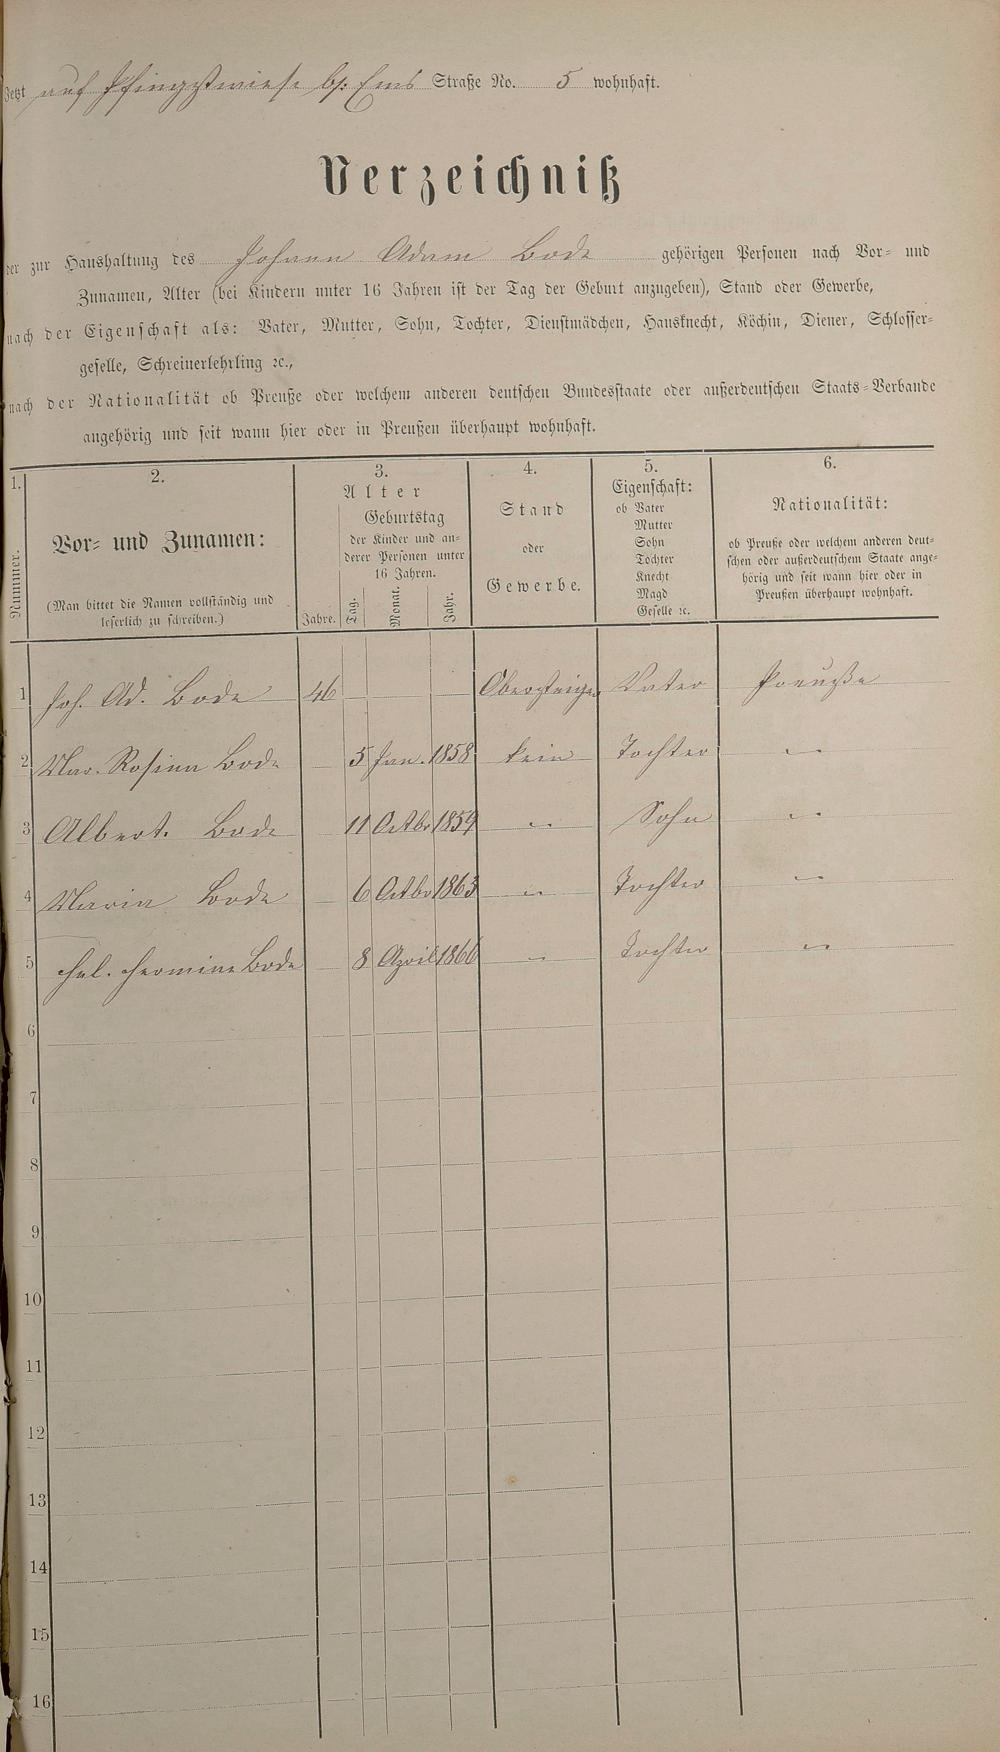 Jetzt auf Pfingstwiese b/ Ems Straße No. 5 wohnhaft.
Verzeichniß
der zur Haushaltung des Johann Adam Bode gehörigen Personen nach Vor- und
Zunamen, Alter (bei Kindern unter 16 Jahren ist der Tag der Geburt anzugeben), Stand oder Gewerbe,
nach der Eigenschaft als: Vater, Mutter, Sohn, Tochter, Dienstmädchen, Hausknecht, Köchin, Diener, Schlosser-
geselle, Schreinerlehrling ꝛc.,
nach der Nationalität ob Preuße oder welchem anderen deutschen Bundesstaate oder außerdeutschen Staats-Verbande
angehörig und seit wann hier oder in Preußen überhaupt wohnhaft.
1.
Nummer.
2.
Vor- und Zunamen:
(Man bittet die Namen vollständig und
leserlich zu schreiben.)
3.
Alter
Jahre.
Geburtstag
der Kinder und an-
derer Personen unter
16 Jahren.
Tag. Monat. Jahr.
4.
Stand
oder
Gewerbe.
5.
Eigenschaft:
ob Vater
Mutter
Sohn
Tochter
Knecht
Magd
Geselle ꝛc.
6.
Nationalität:
ob Preuße oder welchem anderen deut-
schen oder außerdeutschem Staate ange-
hörig und seit wann hier oder in
Preußen überhaupt wohnhaft.
1 Joh. Ad. Bode 46 Obersteiger Vater Preuße
2 Mar. Rosina Bode 5 Jan. 1858 kein Tochter "
3 Albert. Bode 11 Octbr 1859 " Sohn "
4 Maria Bode 6 Octbr 1863 " Tochter "
5 Hel. Hermine Bode 8 April 1866 " Tochter "
6
7
8
9
10
11
12
13
14
15
16